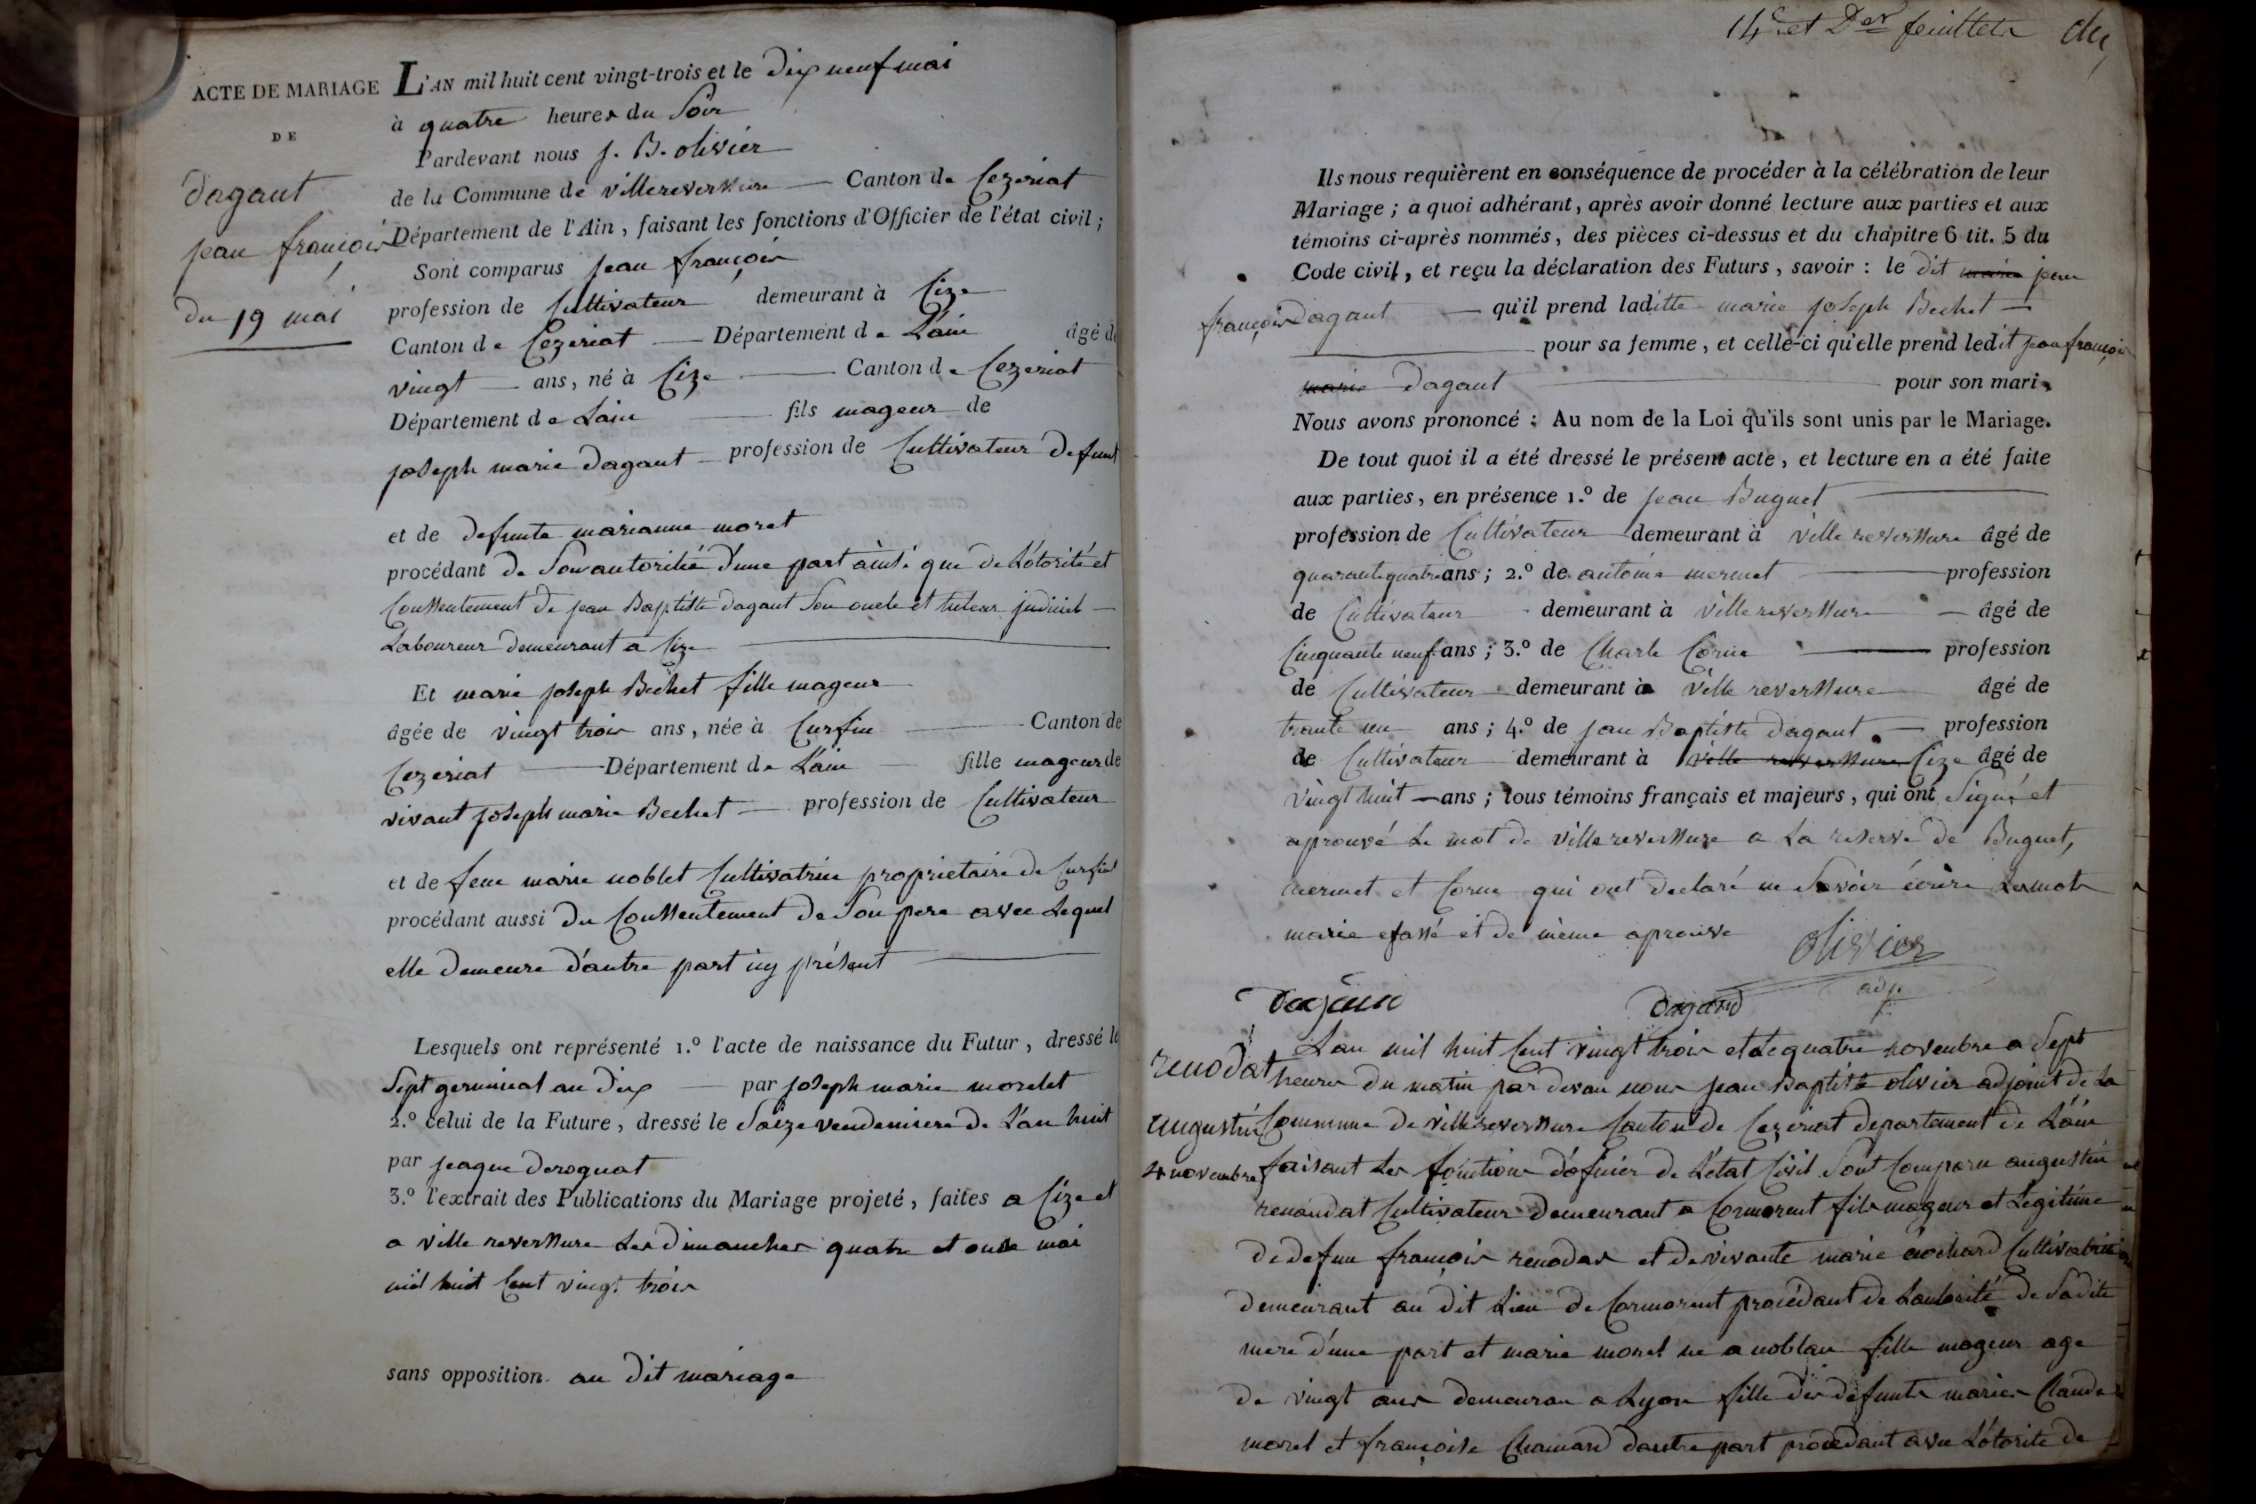 ACTE DE MARIAGE
DE
dagaut
jean françois
du 19 mai
L'AN mil huit cent vingt-trois et le dix neuf mai
à quatre heures du Soir
Pardevant nous j. B. olivier
de la Commune de villereversure Canton de Cezeriat
Département de l'Ain, faisant les fonctions d'Officier de l'état civil ;
Sont comparus jean françois
profession de Cultivateur demeurant à Cize
Canton de Cezeriat Département de L'ain âgé de
vingt ans, né à Cize Canton de Cezeriat
Département de Lain fils mageur de
joseph marie dagaut profession de Cultivateur defunt
et de defunte marianne moret
procédant de Son autorité d'une part ainsi que de L'otorité et
Consentement de jean Baptiste dagaut Son oncle et tuteur judiciel
Laboureur demeurant a Cize
Et marie joseph Bechet fille mageur
âgée de vingt trois ans, née à Curfin Canton de
Cezeriat Département de L'ain fille mageur de
vivant joseph marie Bechet profession de Cultivateur
et de feue marie noblet Cultivatrice proprietaire de
procédant aussi du Consentement de Son pere avec Lequel
elle demeure d'autre part icy présent
Lesquels ont représenté 1.º l'acte de naissance du Futur, dressé le
Sept germinal an dix par joseph marie morelet
2.º celui de la Future, dressé le Saize vendemiere de L'an huit
par jaque deroguat
3.º l'extrait des Publications du Mariage projeté, faites a Cize et
a ville reverssure Les dimanches quatre et onse mai
mil huit Cent vingt trois
sans opposition au dit mariage
14e et Der feuillets
Ils nous requièrent en conséquence de procéder à la célébration de leur
Mariage ; a quoi adhérant, après avoir donné lecture aux parties et aux
témoins ci-après nommés, des pièces ci-dessus et du chapitre 6 tit. 5 du
Code civil, et reçu la déclaration des Futurs, savoir : le dit marie jean
françois dagaut qu'il prend laditte marie joseph Bechet
pour sa femme, et celle-ci qu'elle prend ledit jean françois
marie dagaut pour son mari,
Nous avons prononcé : Au nom de la Loi qu'ils sont unis par le Mariage.
De tout quoi il a été dressé le présent acte, et lecture en a été faite
aux parties, en présence 1.º de jean Buguet
profession de Cultivateur demeurant à ville reverssure âgé de
quarante quatre ans ; 2.º de antoine mermet profession
de Cultivateur demeurant à ville reverssure âgé de
Cinquante neuf ans ; 3.º de Charle Corne profession
de Cultivateur demeurant à ville reverssure âgé de
trante un ans ; 4.º de jean Baptiste dagaut profession
de Cultivateur demeurant à ville reverssure Cize âgé de
vingt huit ans ; tous témoins français et majeurs, qui ont Signé et
aprouvé Le mot de ville reverssure a La reserve de Buguet,
mermet et Corne qui ont declaré ne Savoir écrire Les mots
marie efassé et de même aprouve
olivier
adj.
renodat
augustin
4 novembre
Lan mil huit Cent vingt trois et Le quatre novembre a Sept
heures du matin par devan nous jean Baptiste olivier adjoint de La
Commune de ville reverssure Canton de Cezeriat departement de L'ain
faisant Les fonctions d'oficier de L'etat Civil Sont Comparu augustin
renaudat Cultivateur demeurant a Cormorent fils mageur et Legitime
de defun françois renodat et de vivante marie Cultivatrice
demeurant au dit Lieu de Cormorent procédant de Lautorité de Sadite
mere d'une part et marie morel né a noblan fille mageur age
de vingt ans demeuran a Lyon fille des defunts maries Claude
morel et françoise Chanard dautre part procedant avec L'otorite de